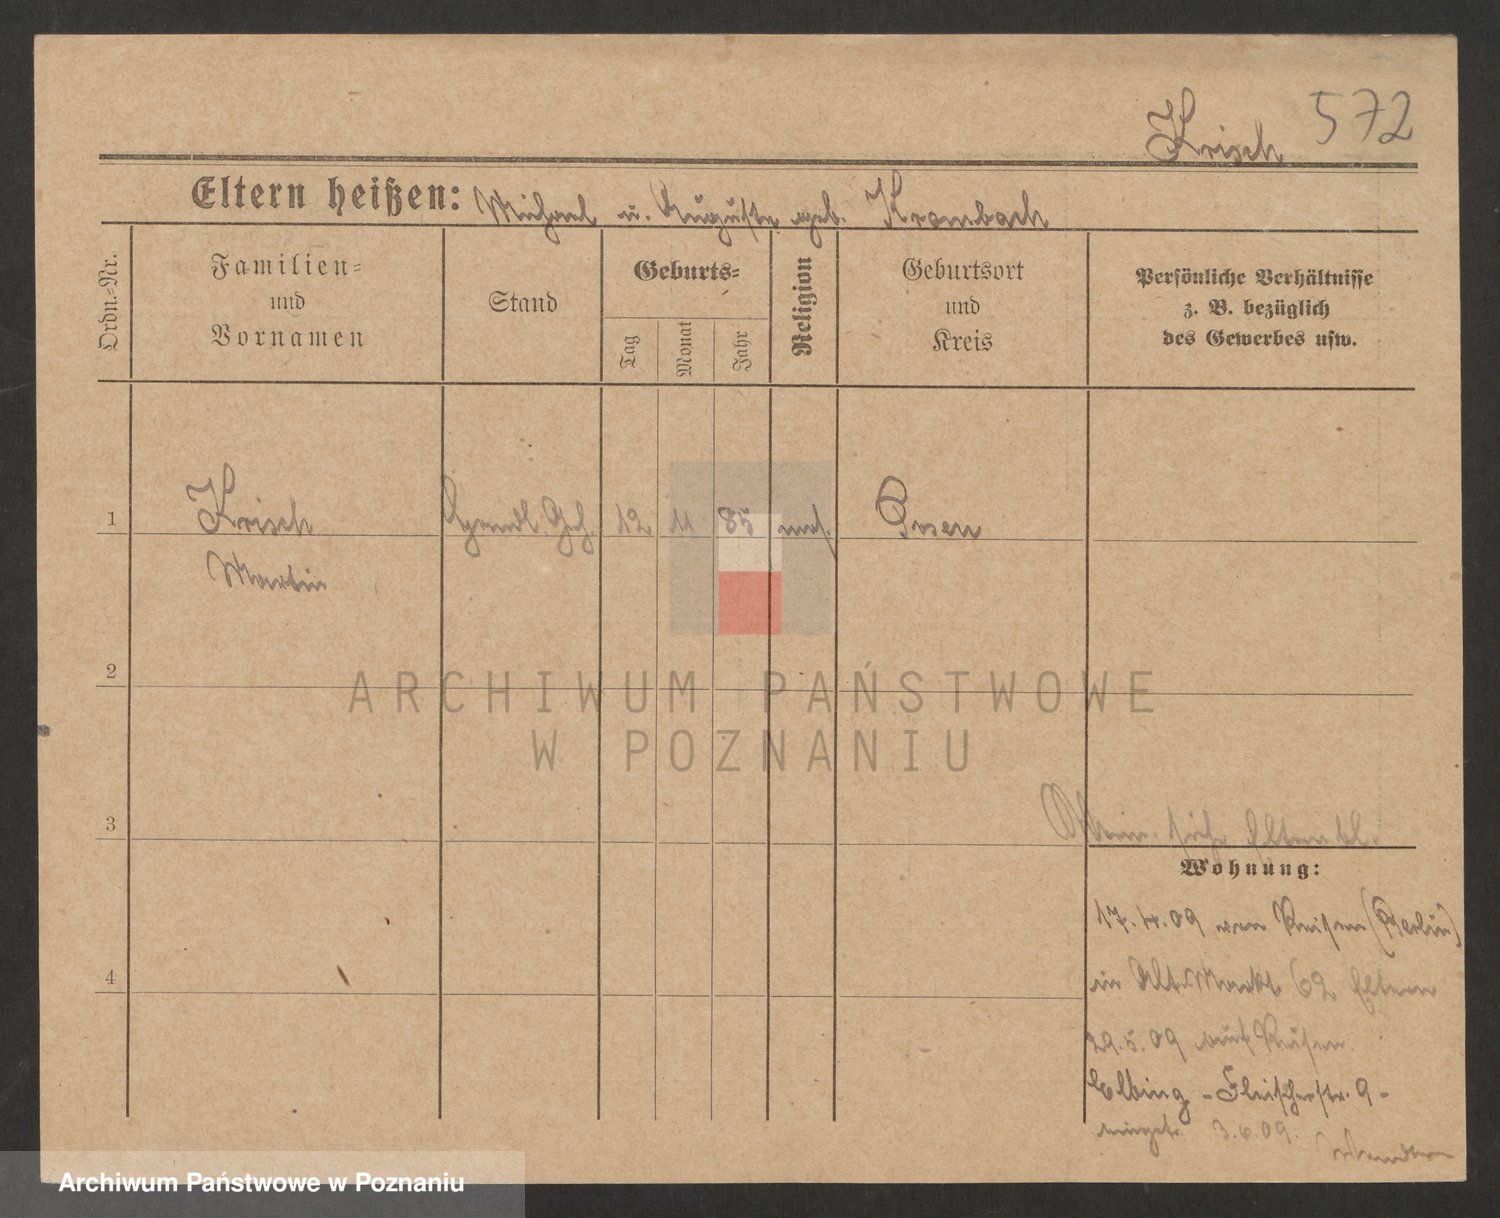 Krisch 572
Eltern heißen: Michael u. Auguste geb. Krombach
Ordn.-Nr.
Familien-
und
Vornamen
Stand
Geburts-
Tag
Monat
Jahr
Religion
Geburtsort
und
Kreis
Persönliche Verhältnisse
z. B. bezüglich
des Gewerbes usw.
1
Krisch
12 11 85
Posen
Martin
2
3
siehe Elternbl.
Wohnung:
17.4.09 von Reisen (Berlin)
in Alt. Markt 62 Eltern
29.5.09 auf Reisen
Elbing - Fleischerstr. 9 -
3.6.09.
4
ARCHIWUM PAŃSTWOWE
W POZNANIU
Archiwum Państwowe w Poznaniu